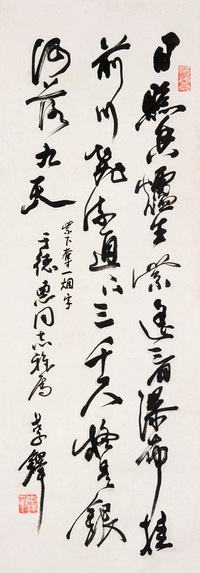 日照香爐生紫遥看瀑布挂
前川飛流直下三千尺疑是銀
河落九天
紫下奪一烟字
于德惠同志雅属
李鐸